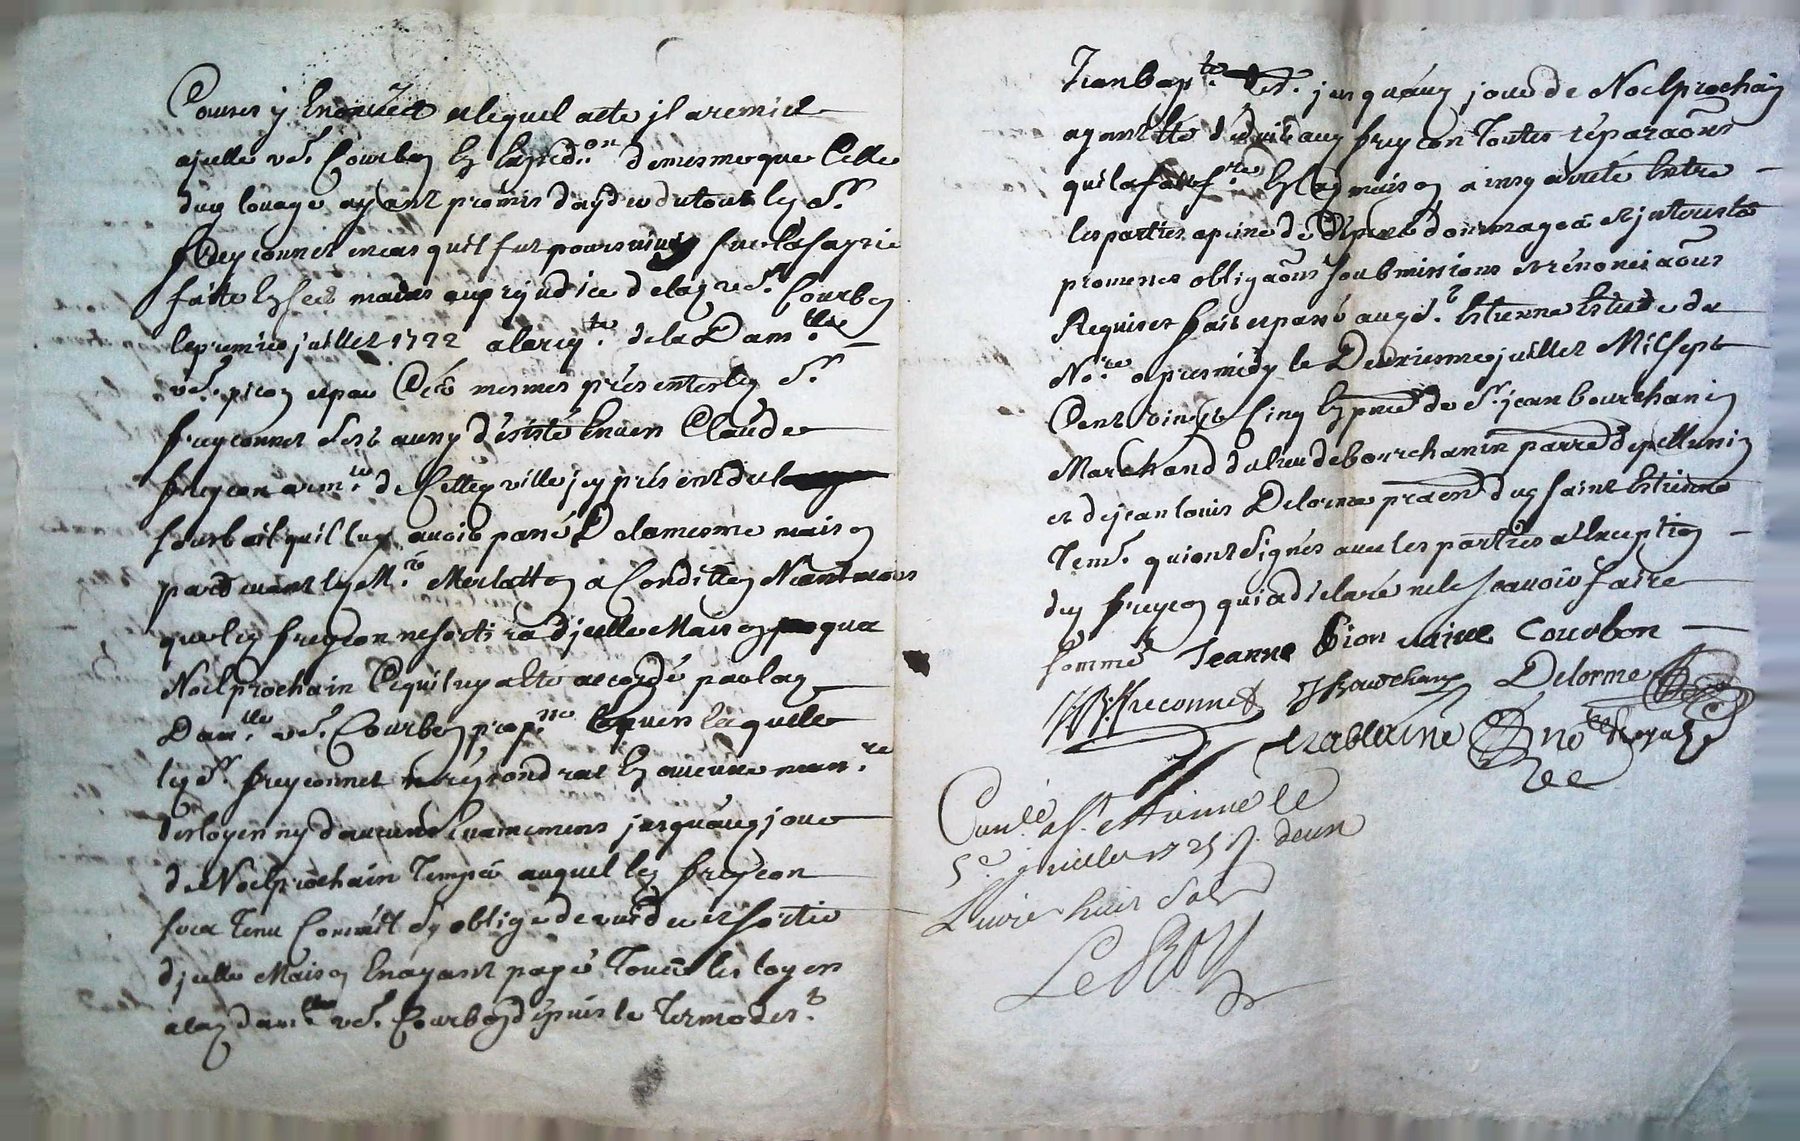 Causes y Enoncées auquel acte jl a remis
ajcelle ve. Courbon Ex larped.on de mesme que Celle
dug louage ayant promis dayder du tout leg Sr.
freyconnet en cas quil fut poursuivy sur la saysie
faitte Es ses mains au prejudice de lag ve. Courbon
le premier juillet 1722 a la req.te de la Dam.lle
ve. picon et par Ces mesmes présentes leg Sr.
freyconnet sest aussy désisté Envers Claude
freycon arm.er de Cette ville jcy présent du
soubail quil luy avoit passé De la mesme maison
pardevant leg M.e Merlatton a Condition Néantmoins
que leg freycon ne sortira djcelle Maison qua
Noel prochain Ce qui luy a été accordé par lag
Dam.lle ve. Courbon prop.re Envers laquelle
leg Sr. freyconnet ne répondrat En aucune man.re
des loyers ny daucuns Evainemens jusquaug jour
de Noel prochain Temps auquel leg freycon
sera Tenu Comme Il sy oblige de vuider et sortir
djcelle Maison En ayant payé Tous les loyers
a lag dam.lle ve. Courbon dépuis le Terme de St.
Jean bap.te der. jusquaug jour de Noel prochain
ayant été déduit aug freycon Toutes réparaons
quil a fait f.re En lag maison ainsy arreté Entre
les parties a peine de Dépens dommages et jnterests
promesses obligaons soubmissions et rénonciaons
Requises fait et passé aug St. Etienne Estude du
No.re apres midy le Deuxiesme juillet Mil sept
Cent vingt Cinq En pnce de Sr. jean bourchanin
Marchand du lieu de bourchanin parre de pellussin
et de jean louis Delorme praen dug saint Etienne
Tem. qui ont Signés avec les parties a lexception
dug freycon qui a déclaré ne le scavoir faire
sommé Jeanne Pion vaive Courbon
Freconnet JBourchany Delorme
Trablaine no.re royal
Con.lé a St. etienne le
5e. juillet 1725 R. deux
Livre huit Sols
Le Roy